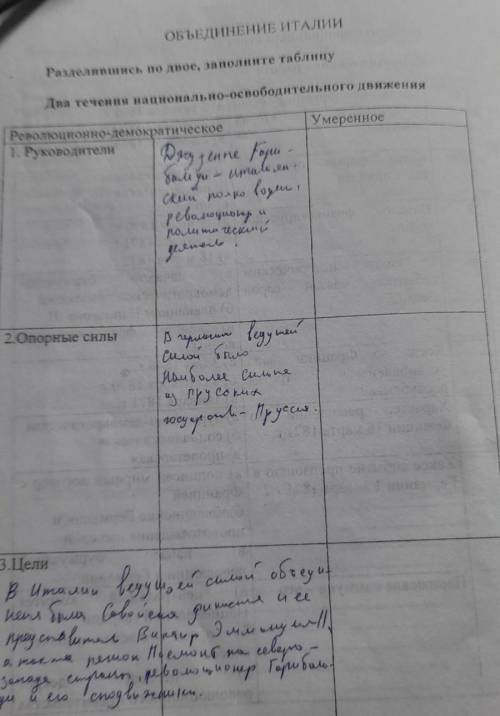 ОБЪЕДИНЕНИЕ ИТАЛИИ
Разделившись по двое, заполните таблицу
Два течения национально-освободительного движения
Революционно-демократическое
Умеренное
1. Руководители
Джузеппе Гари-
бальди - итальян-
ский полководец,
революционер и
политический
деятель.
2.Опорные силы
В германии ведущей
силой было
Наиболее сильна
из прусских
государств - Пруссия.
3.Цели
В Италии ведущей силой объеди-
нения была Савойская династия и ее
представитель Виктор Эммануил II,
а также регион Пьемонт на северо-
западе страны, революционер Гарибаль
ди и его сподвижники.